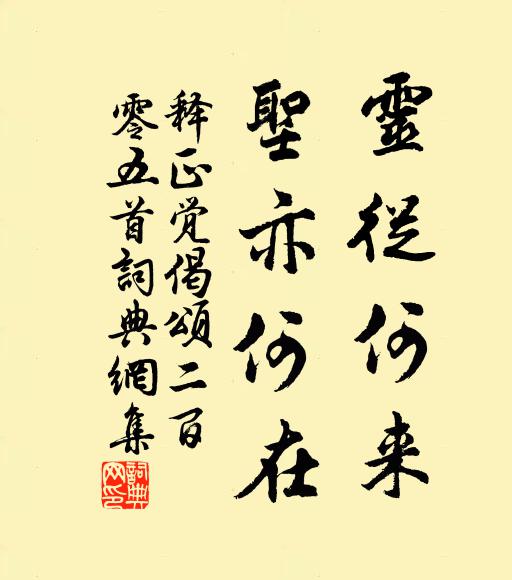 靈從何来
聖亦何在
释正觉偈頌二百
零五首詞典網集
詞典网印